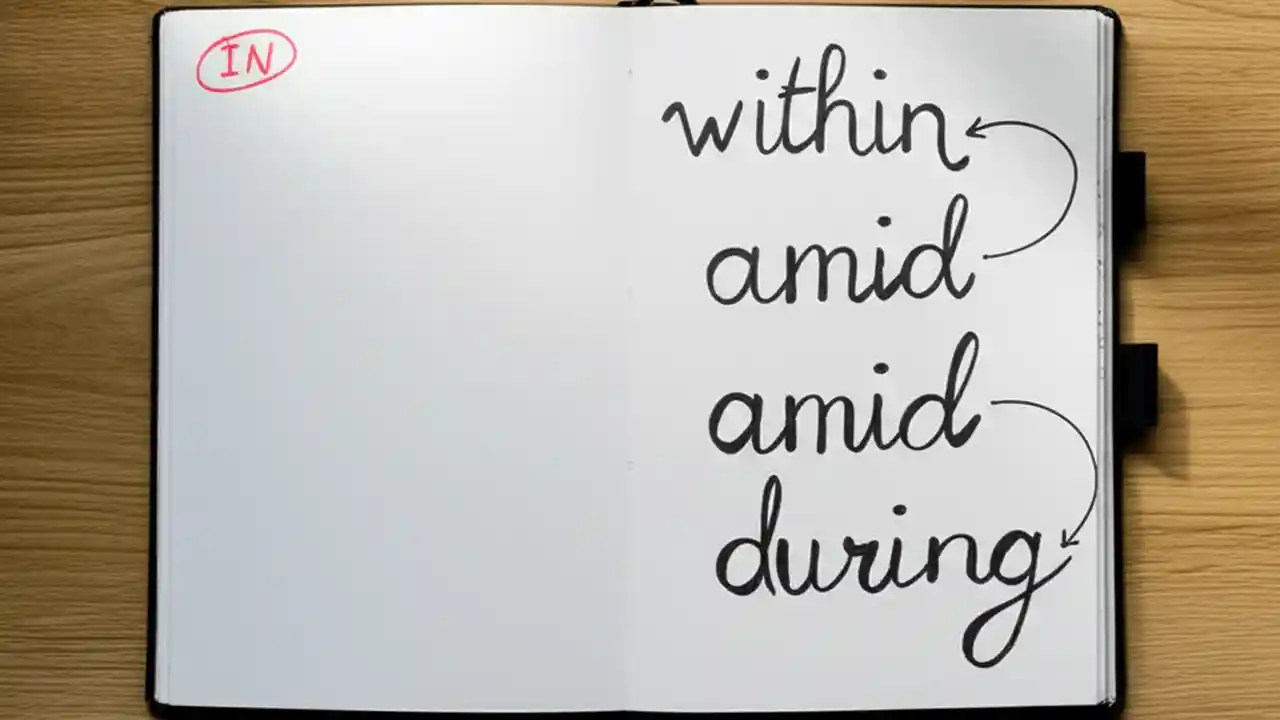 IN
within
amid
amid
during